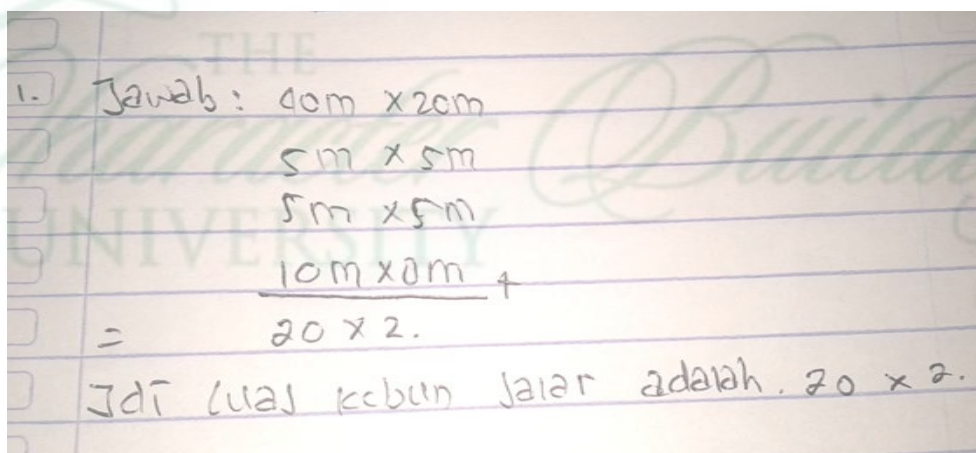 THE
Character Building
UNIVERSITY
1. Jawab: 40m x 20m
5m x 5m
5m x 5m
10m x 0m +
= 20 x 2.
Jdi luas kebun Jalar adalah. 20 x 2.